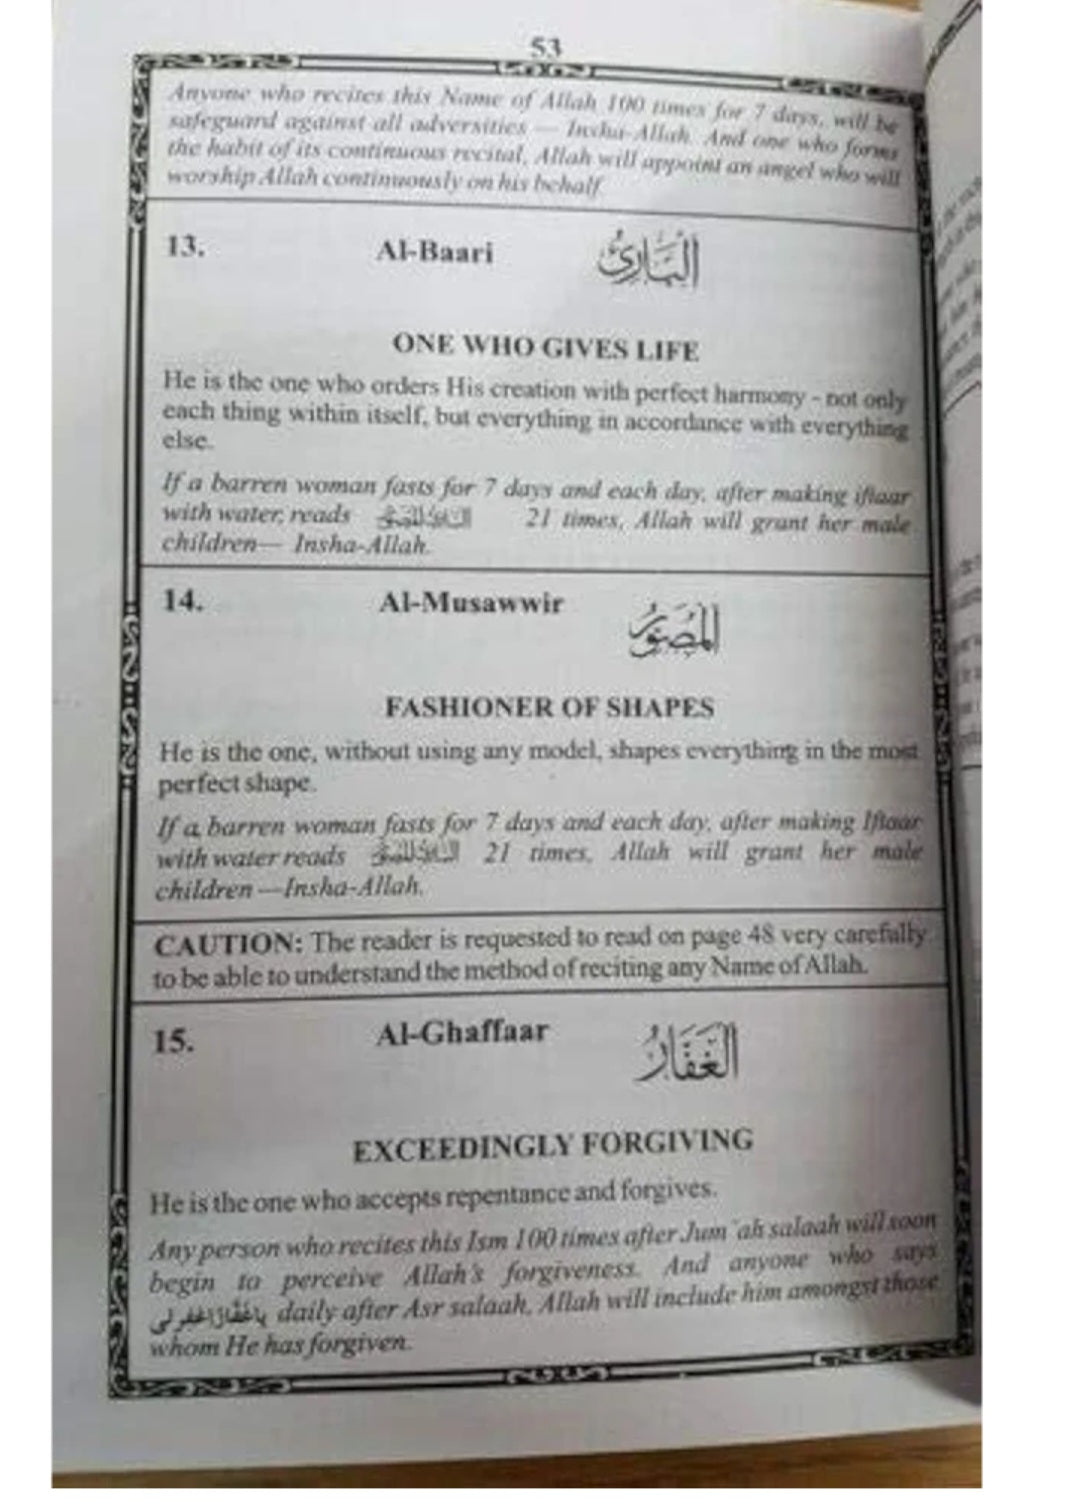 53
Anyone who recites this Name of Allah 100 times for 7 days, will be
safeguard against all adversities — Insha-Allah. And one who forms
the habit of its continuous recital, Allah will appoint an angel who will
worship Allah continuously on his behalf.
13. Al-Baari الْبَارِئُ
ONE WHO GIVES LIFE
He is the one who orders His creation with perfect harmony - not only
each thing within itself, but everything in accordance with everything
else.
If a barren woman fasts for 7 days and each day, after making iftaar
with water, reads 21 times, Allah will grant her male
children— Insha-Allah.
14. Al-Musawwir الْمُصَوِّرُ
FASHIONER OF SHAPES
He is the one, without using any model, shapes everything in the most
perfect shape.
If a barren woman fasts for 7 days and each day, after making Iftaar
with water reads 21 times, Allah will grant her male
children —Insha-Allah.
CAUTION: The reader is requested to read on page 48 very carefully
to be able to understand the method of reciting any Name of Allah.
15. Al-Ghaffaar الْغَفَّارُ
EXCEEDINGLY FORGIVING
He is the one who accepts repentance and forgives.
Any person who recites this Ism 100 times after Jum'ah salaah will soon
begin to perceive Allah's forgiveness. And anyone who says
يَا غَفَّارُ اغْفِرْ لِي daily after Asr salaah, Allah will include him amongst those
whom He has forgiven.